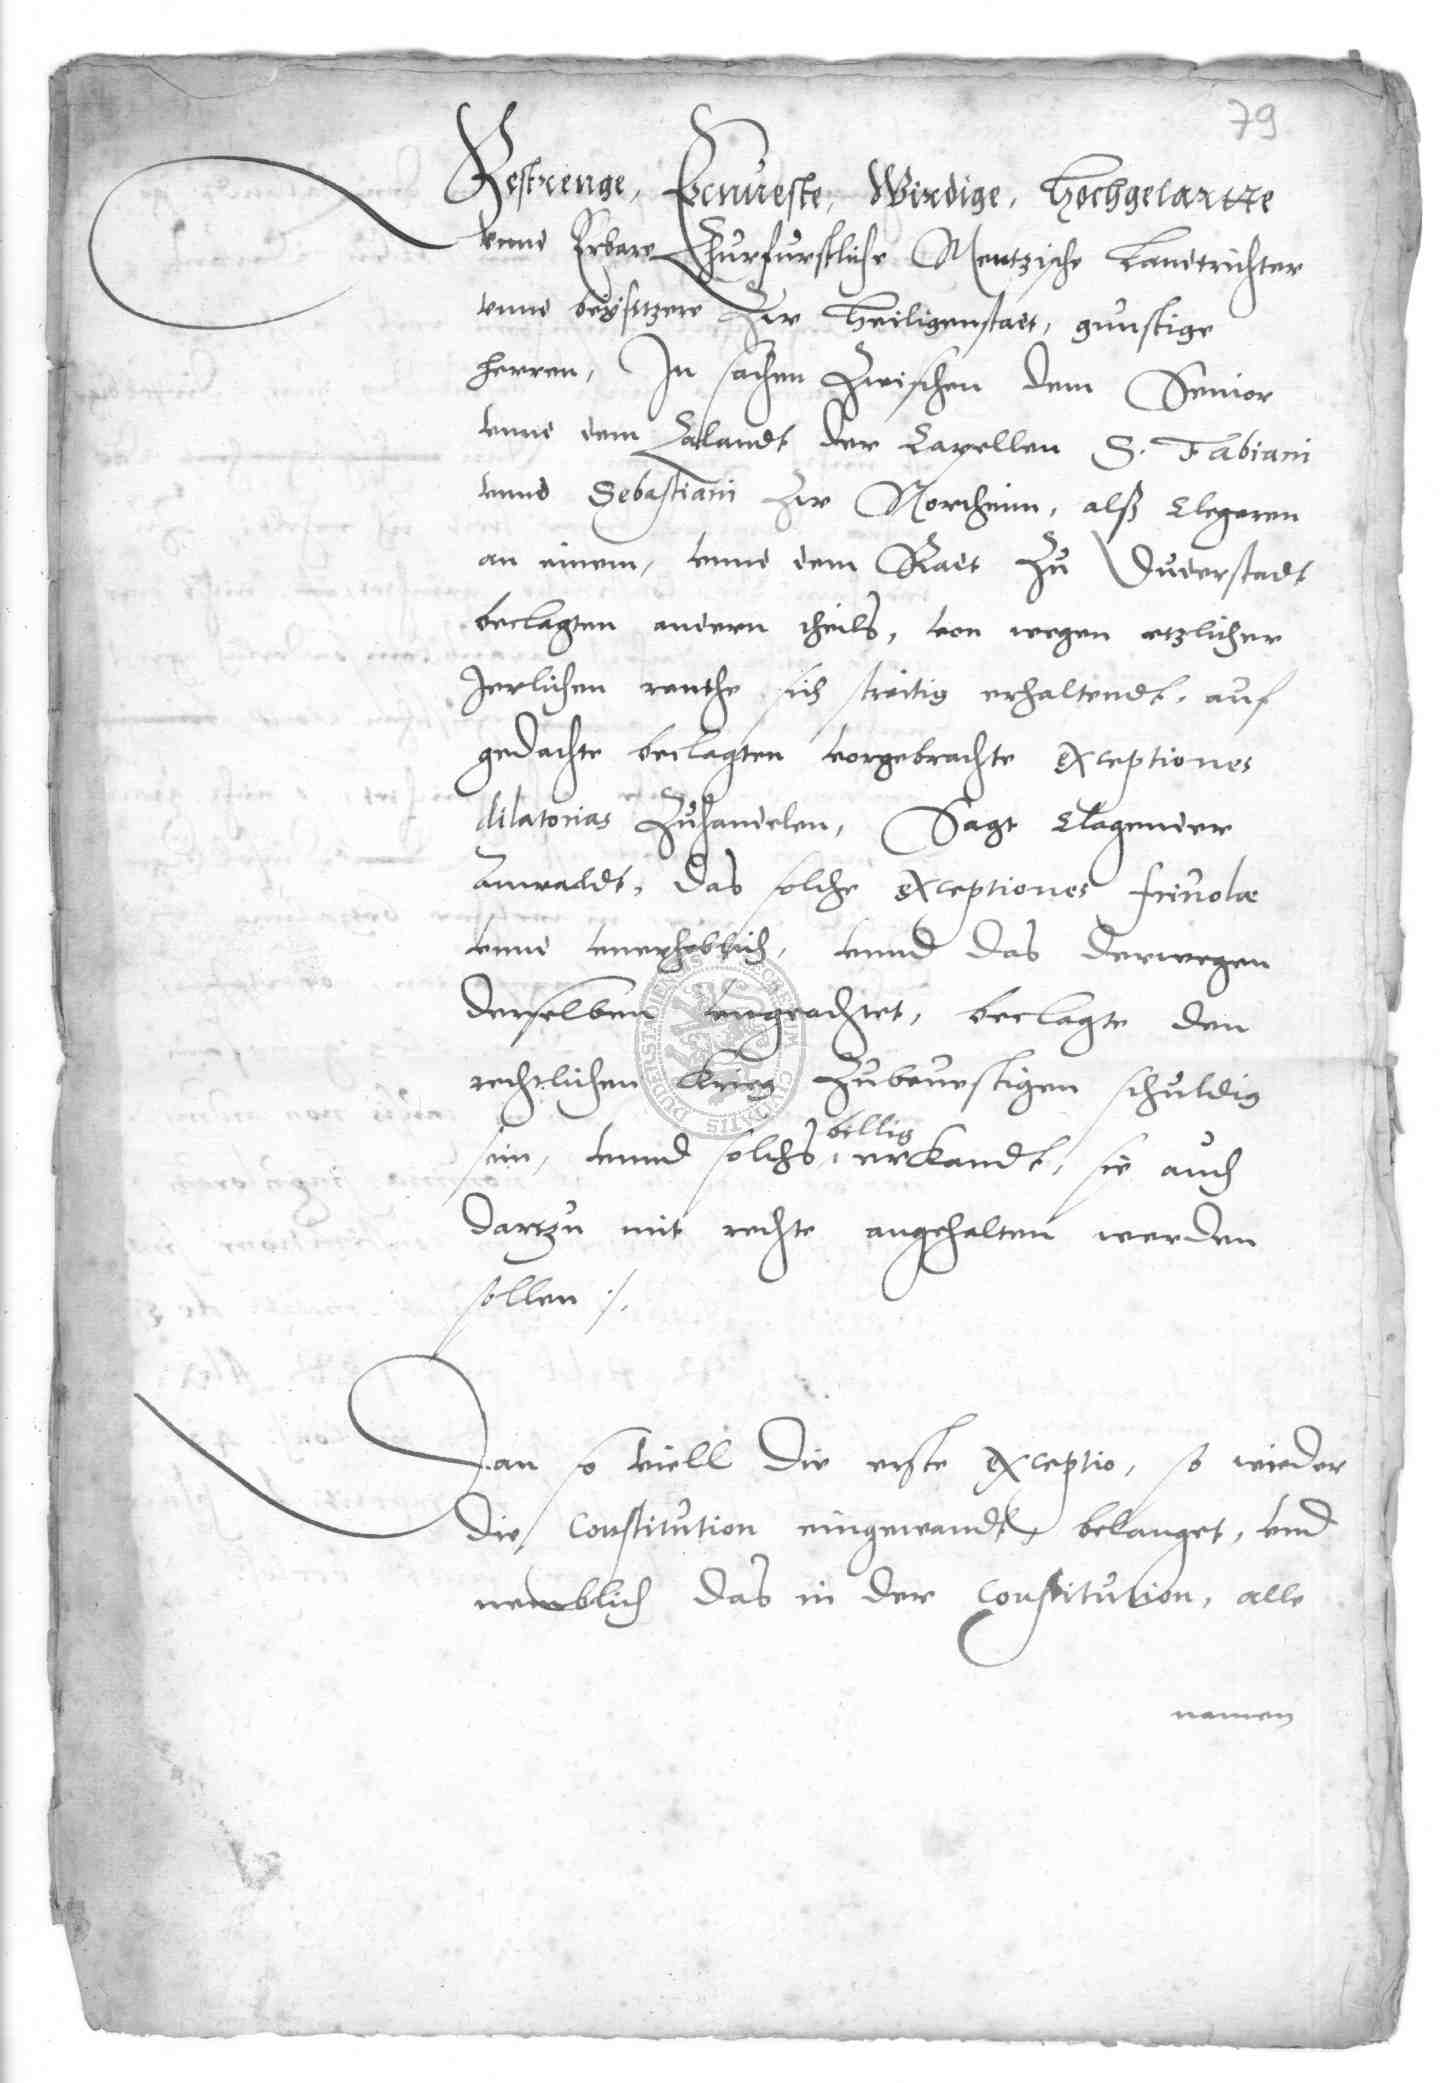 79
Gestrenge, Ernueste, Wirdige, Hochgelartte
vnnd Erbare Churfurstliche Mentzische Landtrichter
vnnd beysitzere Zur Heiligenstadt, gunstige
herren, In sachen Zwischen dem Senior
vnnd dem Calandt der Capellen S. Fabiani
vnnd Sebastiani Zur Northeim, alß Clegeren
an einem, vnnd dem Radt Zu Duderstadt
beclagten andern theils, von wegen etzlicher
Jerlichen renthe sich streitig erhaltendt, auf
gedachte beclagten vorgebrachte exceptiones
dilatorias Zuhandelen, Sagt Clagender
Anwaldt, das solche exceptiones friuolæ
vnnd vnerheblich, vnnd das derwegen
derselben vngeachtet, beclagte den
rechtlichen Krieg Zubeuestigen schuldig
sein, vnnd solchs billig erkandt, sie auch
dartzu mit rechte angehalten werden
sollen ./.
Dan so viell die erste exceptio, so wieder
die Constitution eingewandt, belanget, vnd
nemblich das in der Constitution, alle
namen
SIGILLUM DUDERSTADIENSIS CIVITATIS